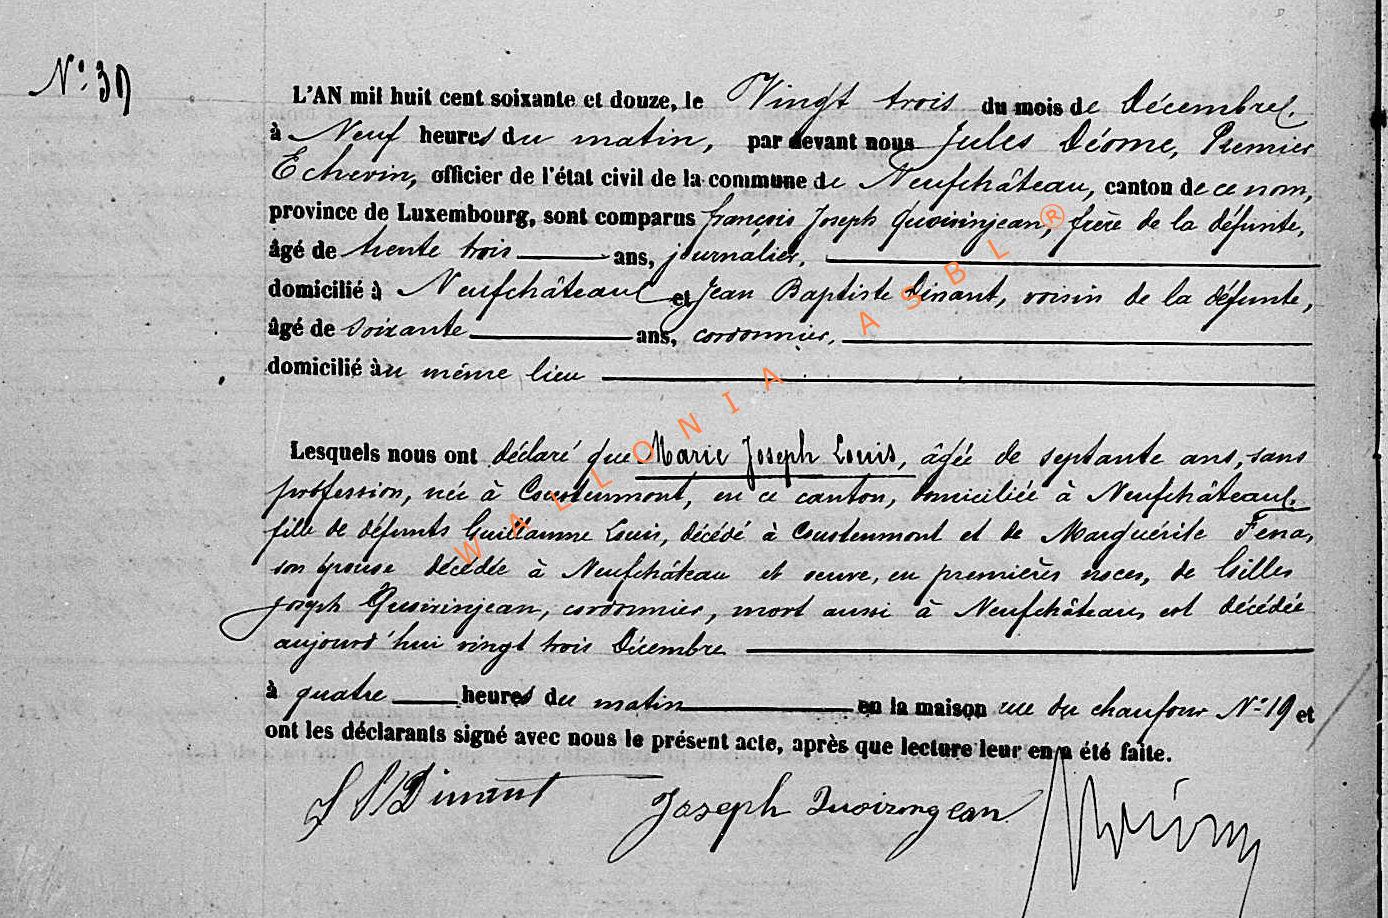 N° 39
L'AN mil huit cent soixante et douze, le Vingt trois du mois de Décembre
à Neuf heures du matin, par devant nous Jules Déome, Premier
Echevin, officier de l'état civil de la commune de Neufchâteau, canton de ce nom,
province de Luxembourg, sont comparus françois Joseph Quoirinjean, frère de la défunte,
âgé de trente trois ans, journalier,
domicilié à Neufchâteau et Jean Baptiste Dinant, voisin de la défunte,
âgé de soixante ans, cordonnier,
domicilié au même lieu
Lesquels nous ont déclaré que Marie Joseph Louis, âgée de septante ans, sans
profession, née à Coustenmont, en ce canton, domiciliée à Neufchâteau,
fille de défunts Guillaume Louis, décédé à Coustenmont et de Marguérite Fena,
son épouse décédée à Neufchâteau et veuve, en premières noces, de Gilles
Joseph Quoirinjean, cordonnier, mort aussi à Neufchâteau, est décédée
aujourd'hui vingt trois Décembre
à quatre heures du matin en la maison rue du chaufour N° 19 et
ont les déclarants signé avec nous le présent acte, après que lecture leur en a été faite.
J B Dinant Joseph Quoirongean
WALLONIA ASBL ®